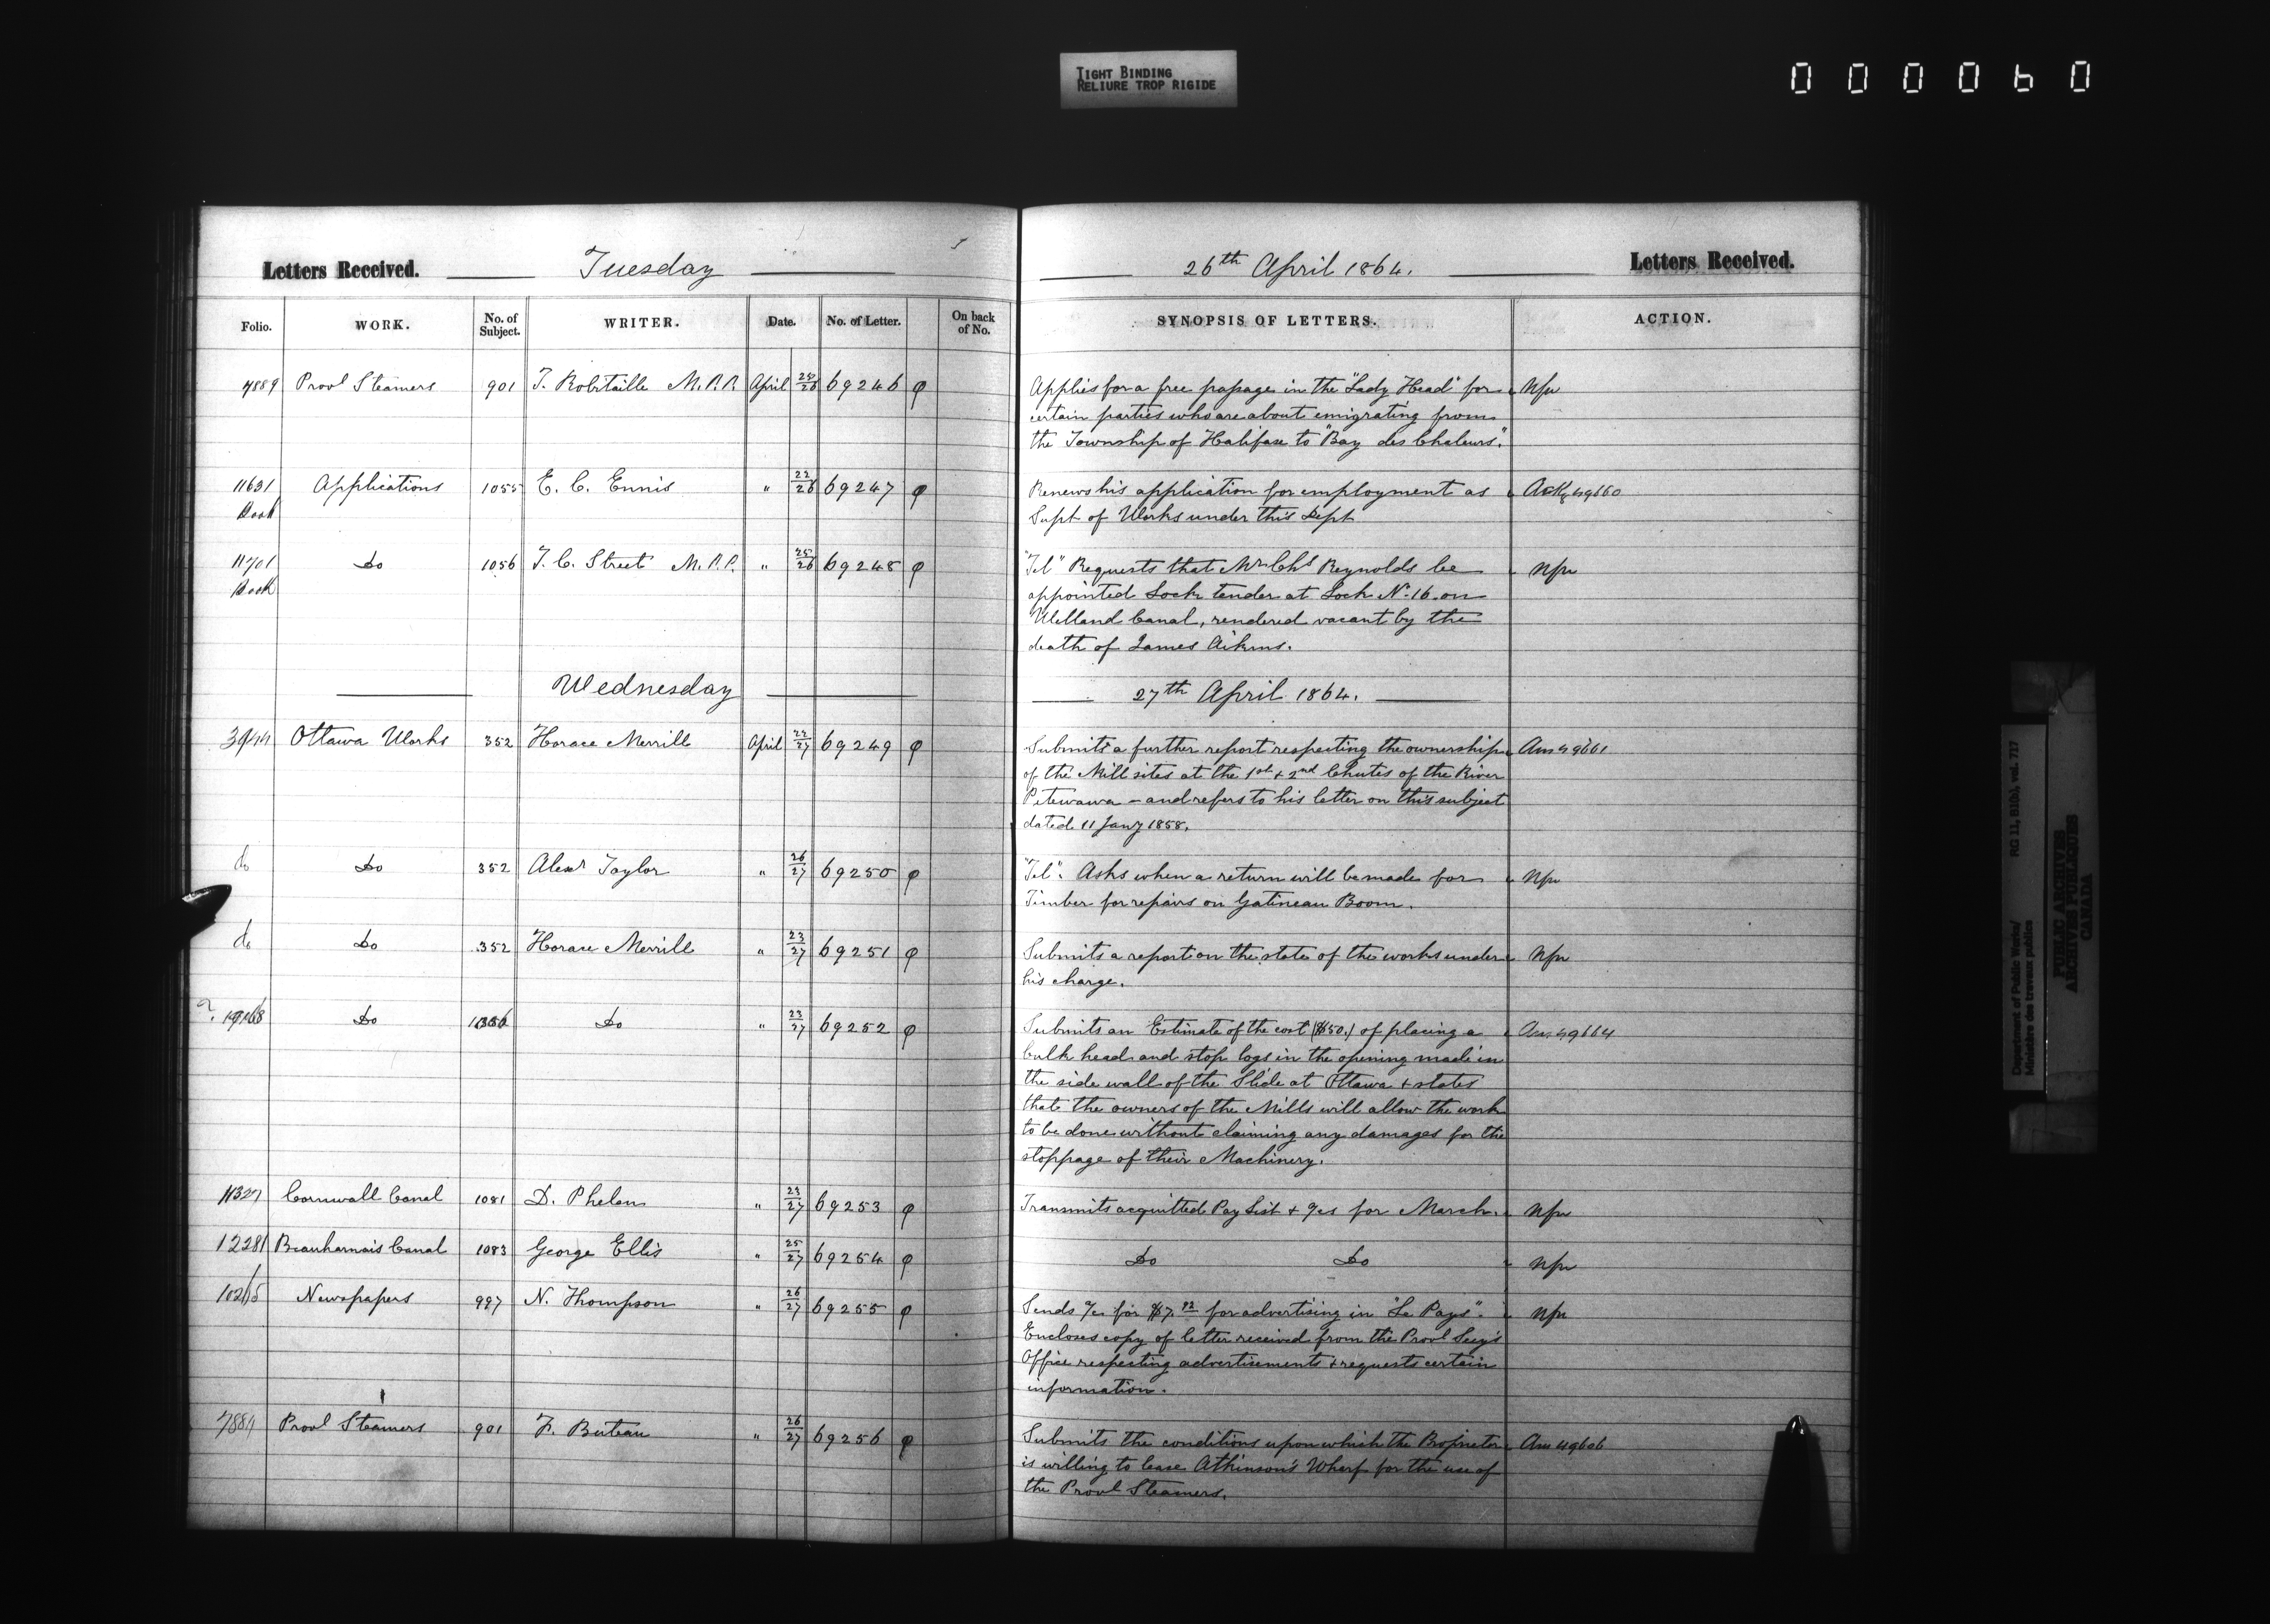 TIGHT BINDING
RELIURE TROP RIGIDE
000060
Letters Received. Tuesday 26th April 1864. Letters Received.
Folio. WORK. No. of Subject. WRITER. Date. No. of Letter. On back of No. SYNOPSIS OF LETTERS. ACTION.
7889 Provl Steamers 901 T. Robitaille M.P.P. April 25/26 69246 Applies for a free passage in the "Lady Head" for
certain parties who are about emigrating from
the Township of Halifax to "Bay des Chaleurs".
11631 Applications 1055 E. C. Ennis " 22/26 69247 Renews his application for employment as Ackg 49660
Book Supt of Works under this Dept
11701 Do 1056 T. C. Street M.P.P. " 25/26 69248 "Tel" Requests that Mr Chs Reynolds be
Book appointed Lock tender at Lock No. 16 on
Welland Canal, rendered vacant by the
death of James Aikins.
Wednesday 27th April 1864.
3944 Ottawa Works 352 Horace Merrill April 22/27 69249 Submits a further report respecting the ownership Ans 49661
of the Mill sites at the 1st + 2nd Chutes of the River
Petewawa - and refers to his letter on this subject
dated 11 Jany 1858.
do Do 352 Alexr Taylor " 26/27 69250 "Tel". Asks when a return will be made for
Timber for repairs on Gatineau Boom.
do Do 352 Horace Merrill " 23/27 69251 Submits a report on the state of the works under
his charge.
Do Do " 23/27 69252 Submits an Estimate of the cost ($50.) of placing a Ans 49664
bulk head and stop logs in the opening made in
the side wall of the Slide at Ottawa + states
that the owners of the Mills will allow the work
to be done without claiming any damages for the
stoppage of their Machinery.
11327 Cornwall Canal 1081 D. Phelan " 23/27 69253 Transmits acquitted Pay List + a/cs for March.
12281 Beauharnois Canal 1083 George Ellis " 25/27 69254 Do Do
Newspapers 997 N. Thompson " 26/27 69255 Sends a/c for for advertising in "Le Pays".
Encloses copy of letter received from the Provl Secy's
Office respecting advertisements + requests certain
information.
Provl Steamers 901 F. Buteau " 26/27 69256 Submits the conditions upon which the Proprietor Ans 49606
is willing to lease Atkinson's Wharf for the use of
the Provl Steamers.
Department of Public Works/
Ministère des travaux publics
RG 11, B1(b), vol. 717
PUBLIC ARCHIVES
ARCHIVES PUBLIQUES
CANADA